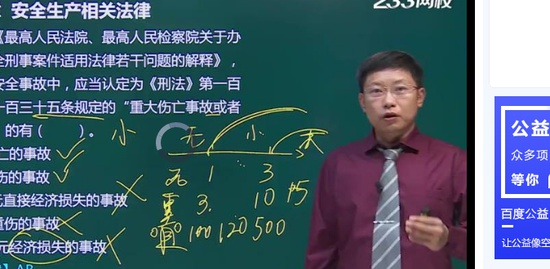 233网校
安全生产相关法律
《最高人民法院、最高人民检察院关于办
全刑事案件适用法律若干问题的解释》，
安全事故中，应当认定为《刑法》第一百
一百三十五条规定的“重大伤亡事故或者
的有（ ）。 小 无 小 大
亡的事故
死 1 3
伤的事故
重 3 10 15
元直接经济损失的事故
直 100 120 500
重伤的事故
元经济损失的事故
公益
众多项
等你
百度公益
让公益像空